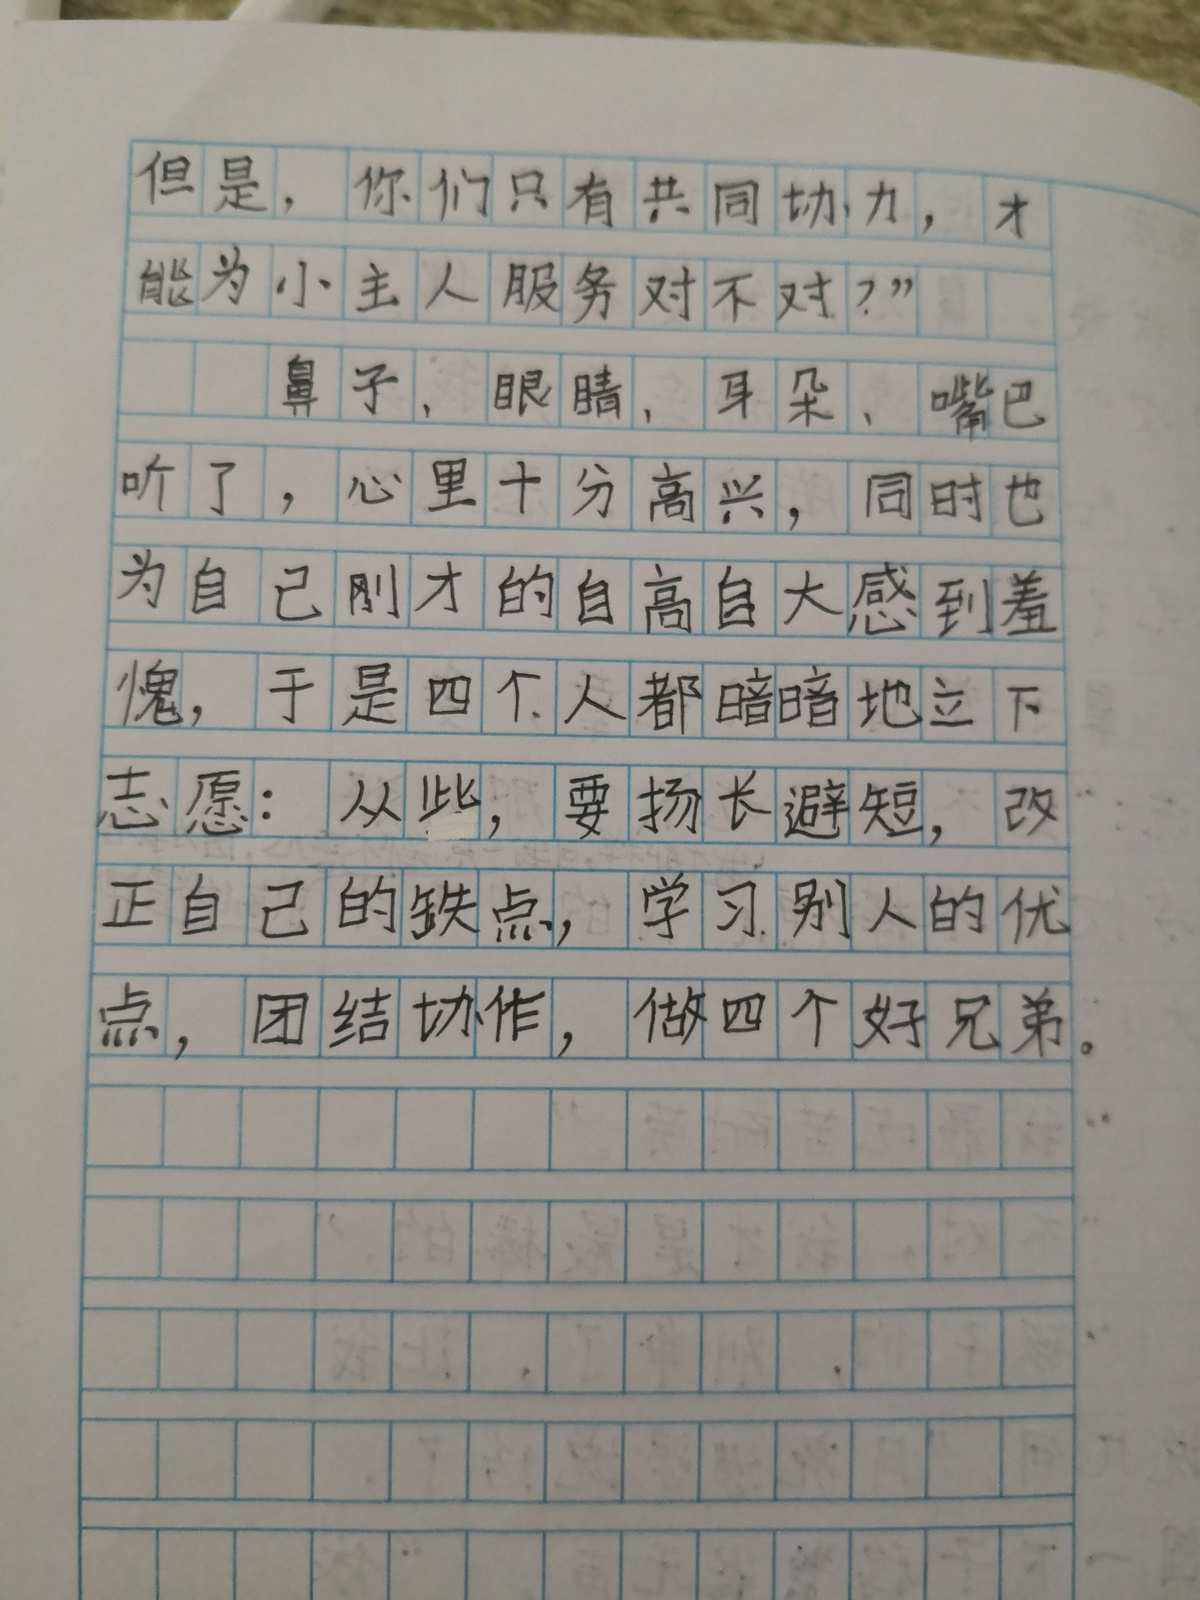 但是，你们只有共同协力，才
能为小主人服务对不对？”
鼻子、眼睛、耳朵、嘴巴
听了，心里十分高兴，同时也
为自己刚才的自高自大感到羞
愧，于是四个人都暗暗地立下
志愿：从此，要扬长避短，改
正自己的缺点，学习别人的优
点，团结协作，做四个好兄弟。